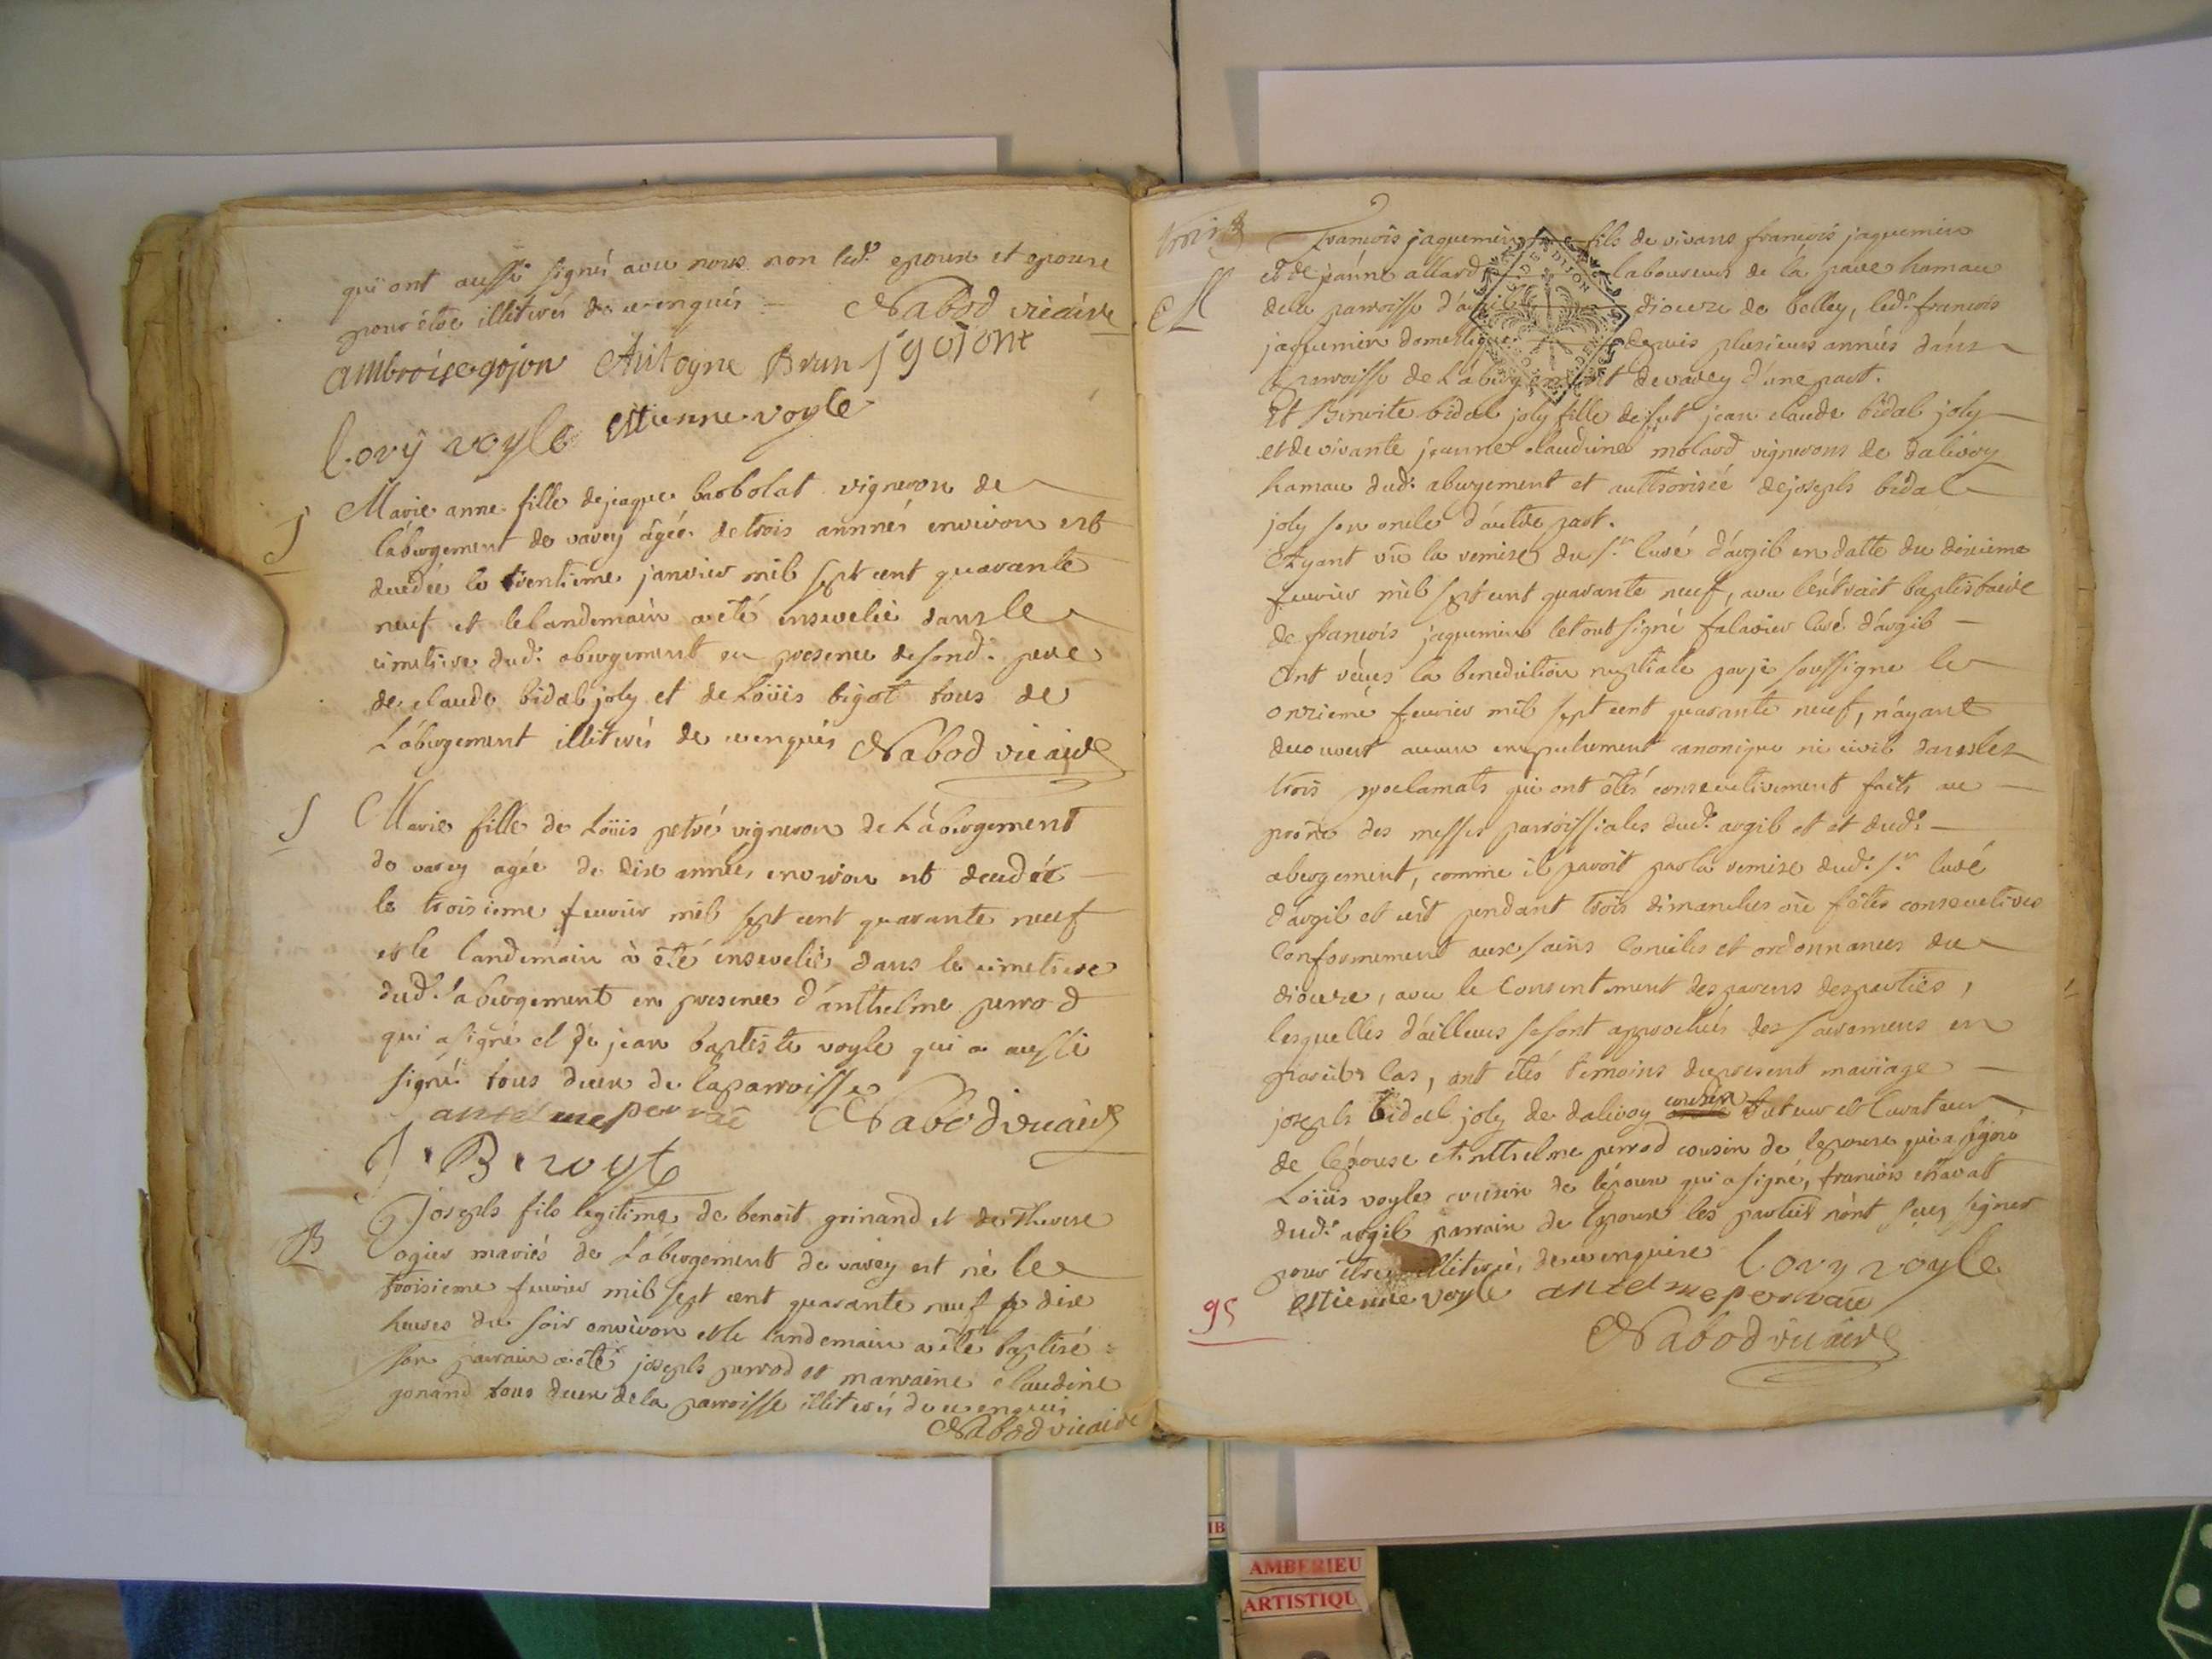 qui ont aussi signés avec nous non led.s epoux et epouse
pour être illiterés de ce enquis Nabod vicaire
ambroise gojon Antoyne Brun j gojont
Lovÿ voyle estienne voyle
S
Marie anne fille de jaque barbolat vigneron de
l'abergement de varey âgée de trois annnés environ est
decedée le trentieme janvier mil sept cent quarante
neuf et le landemain a eté ensevelie dans le
cimetiere dud. abergement en presence de sond. pere
de claude bidal joly et de Loüis bigot tous de
L'abergement illiterés de ce enquis Nabod vicaire
S
Marie fille de Loüis petré vigneron de L'abergement
de varey agée de dix années environ est decedée
le troisieme fevrier mil sept cent quarante neuf
et le landemain à été ensevelie dans le cimetiere
dud. l'abergement en presence d'anthelme perrod
qui a signé et de jean baptiste voyle qui a aussi
signé tous deux de la parroisse
antelme Nabod vicaire
J. B. voyle
B
Joseph fils legitime de benoit grinand et de Therese
ogier mariés de L'abergement de varey est né le
troisieme fevrier mil sept cent quarante neuf dix
heures du soir environ et le landemain a eté baptisé
son parrain a eté joseph perrod et marraine claudine
gonand tous deux de la parroisse illiterés de ce enquis
Nabod vicaire
trois
M
François jaquemin fils de vivans françois jaquemin
et de jeanne allard laboureurs de la pave hamau
de la parroisse d'argil diocese de belley, led. francois
jaquemin domestique depuis plusieurs annés dans
la parroisse de L'abergement de varey d'une part.
Et Benoite bidal joly fille de fut jean claude bidal joly
et de vivante jeanne claudine molard vignerons de dalivoy
hamau dud. abergement et authorisée de joseph bidal
joly son oncle d'autre part.
Ayant vû la remise du s.r curé d'argil en datte du dixieme
fevrier mil sept cent quarante neuf, avec l'extrait baptistaire
de françois jaquemin le tout signé falavier curé d'argil
Ont reçus la benediction nuptiale par je soussigne le
onzieme fevrier mil sept cent quarante neuf, n'ayant
decouvert aucun empechement canonique ni civil dans les
trois proclamats qui ont étés consecutivement faits au
prone des messes parroissiales dud. argil et et dud.
abergement, comme il paroit par la remise dud. s.r curé
d'argil et cest pendant trois dimanches où fêtes consecutives
Conformement aux sains Conciles et ordonnances du
diocese, avec le Consentement des parens des parties,
lesquelles d'ailleurs se sont approchées des sacremens en
pareils cas, ont étés temoins du present mariage
joseph bidal joly de dalivoy cousin tuteur et Curateur
de l'epouse Anthelme perrod cousin de lepouse qui a signé
Loüis voyle cousin de l'epoux qui a signé, francois chavat
dud. argil parrain de lepoux les parties n'ont sceu signer
pour être illiterés de ce enquises Lovy voyle
estienne voyle antelme
95
Nabod vicaire
AMBERIEU
ARTISTIQU